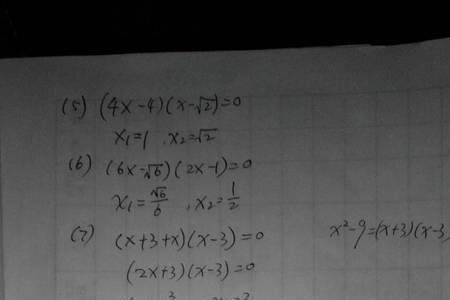 (5) (4x-4)(x-√2)=0
x₁=1 ,x₂=√2
(6) (6x-√6)(2x-1)=0
x₁=√6/6 ,x₂=1/2
(7) (x+3+x)(x-3)=0
x²-9=(x+3)(x-3
(2x+3)(x-3)=0